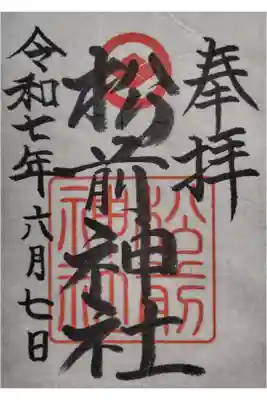 奉拝
松前神社
令和七年六月七日
松前
神社